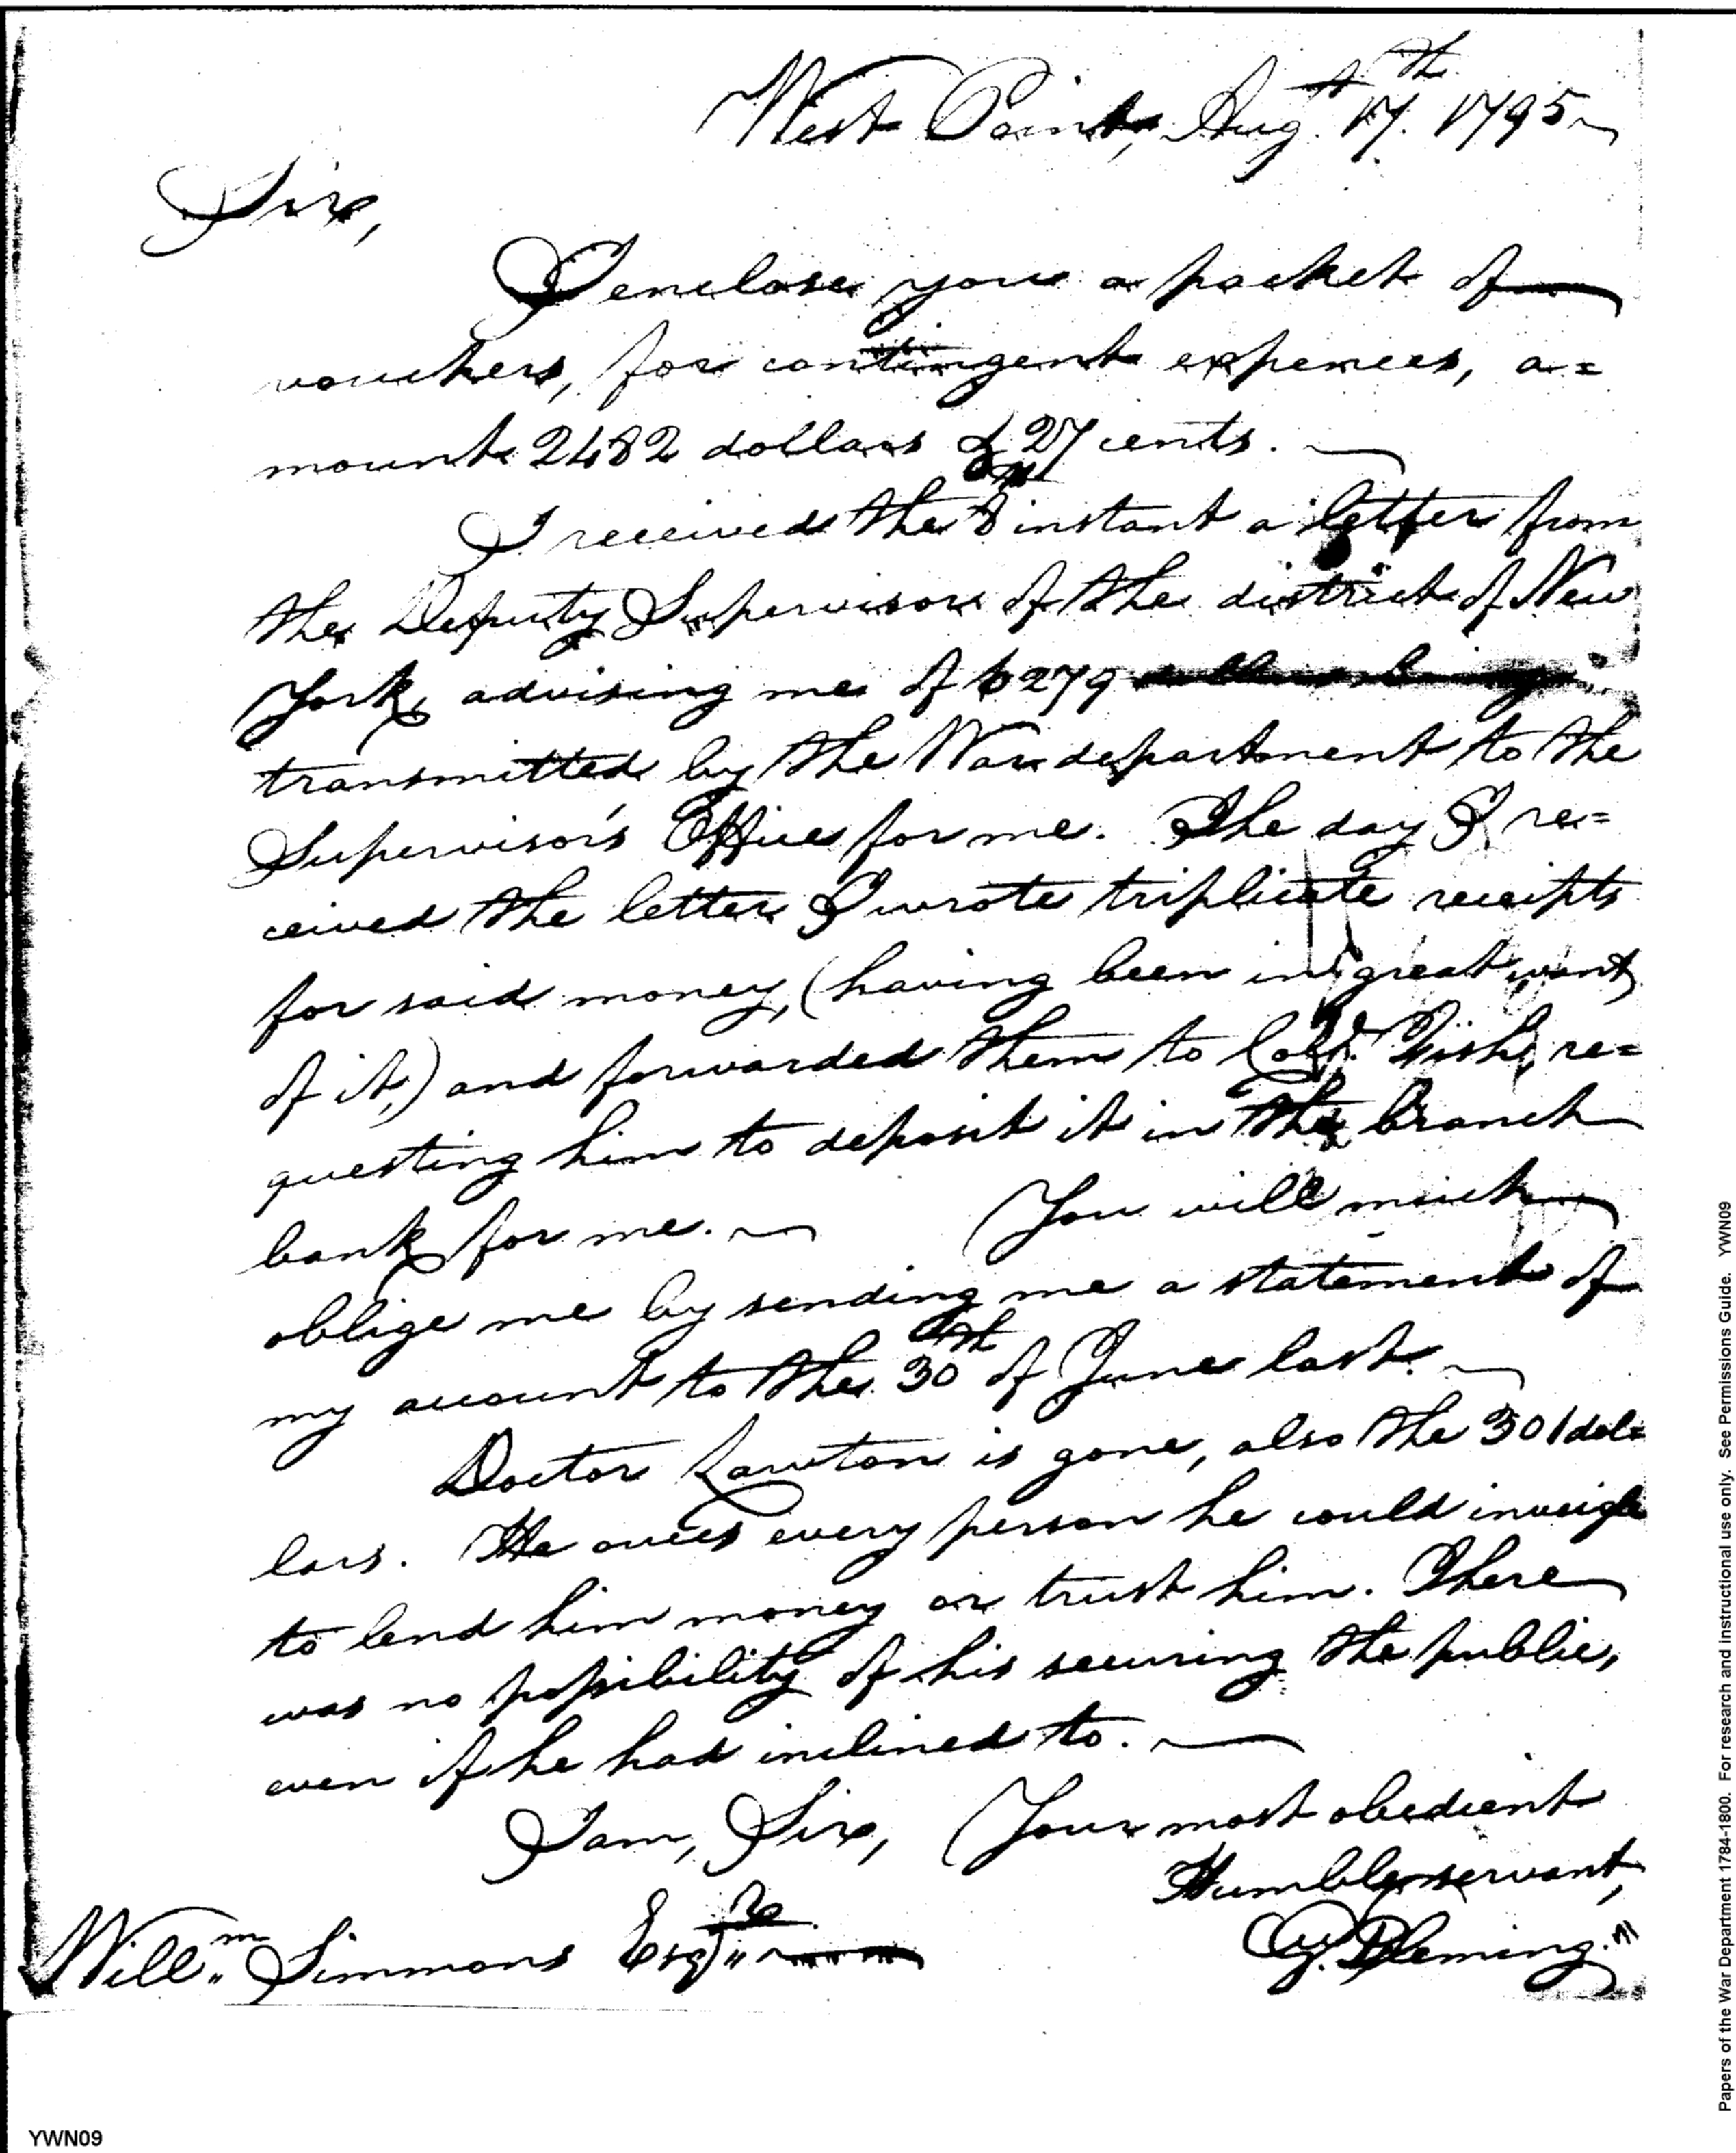 West Point, Augt. 17th. 1795
Sir,
I enclose you a packet of
vouchers, for contingent expences, a=
mount 2482 dollars & 27 cents.
I received the 8 instant a letter from
the Deputy Supervisor of the district of New
York, advising me of $279
transmitted by the War department to the
Supervisor's Office for me. The day I re=
ceived the letter I wrote triplicate receipts
for said money, (having been in great want
of it,) and forwarded them to Coll. Fish, re=
questing him to deposit it in the branch
bank for me. You will much
oblige me by sending me a statement of
my account to the 30th of June last.
Doctor Lawton is gone, also the 301 dol=
lars. He owes every person he could inveigle
to lend him money or trust him. There
was no possibility of his securing the public,
even if he had inclined to.
I am, Sir, Your most obedient
Humble servant,
G. Fleming
Willm. Simmons Esqr.
Papers of the War Department 1784-1800. For research and instructional use only. See Permissions Guide. YWN09
YWN09